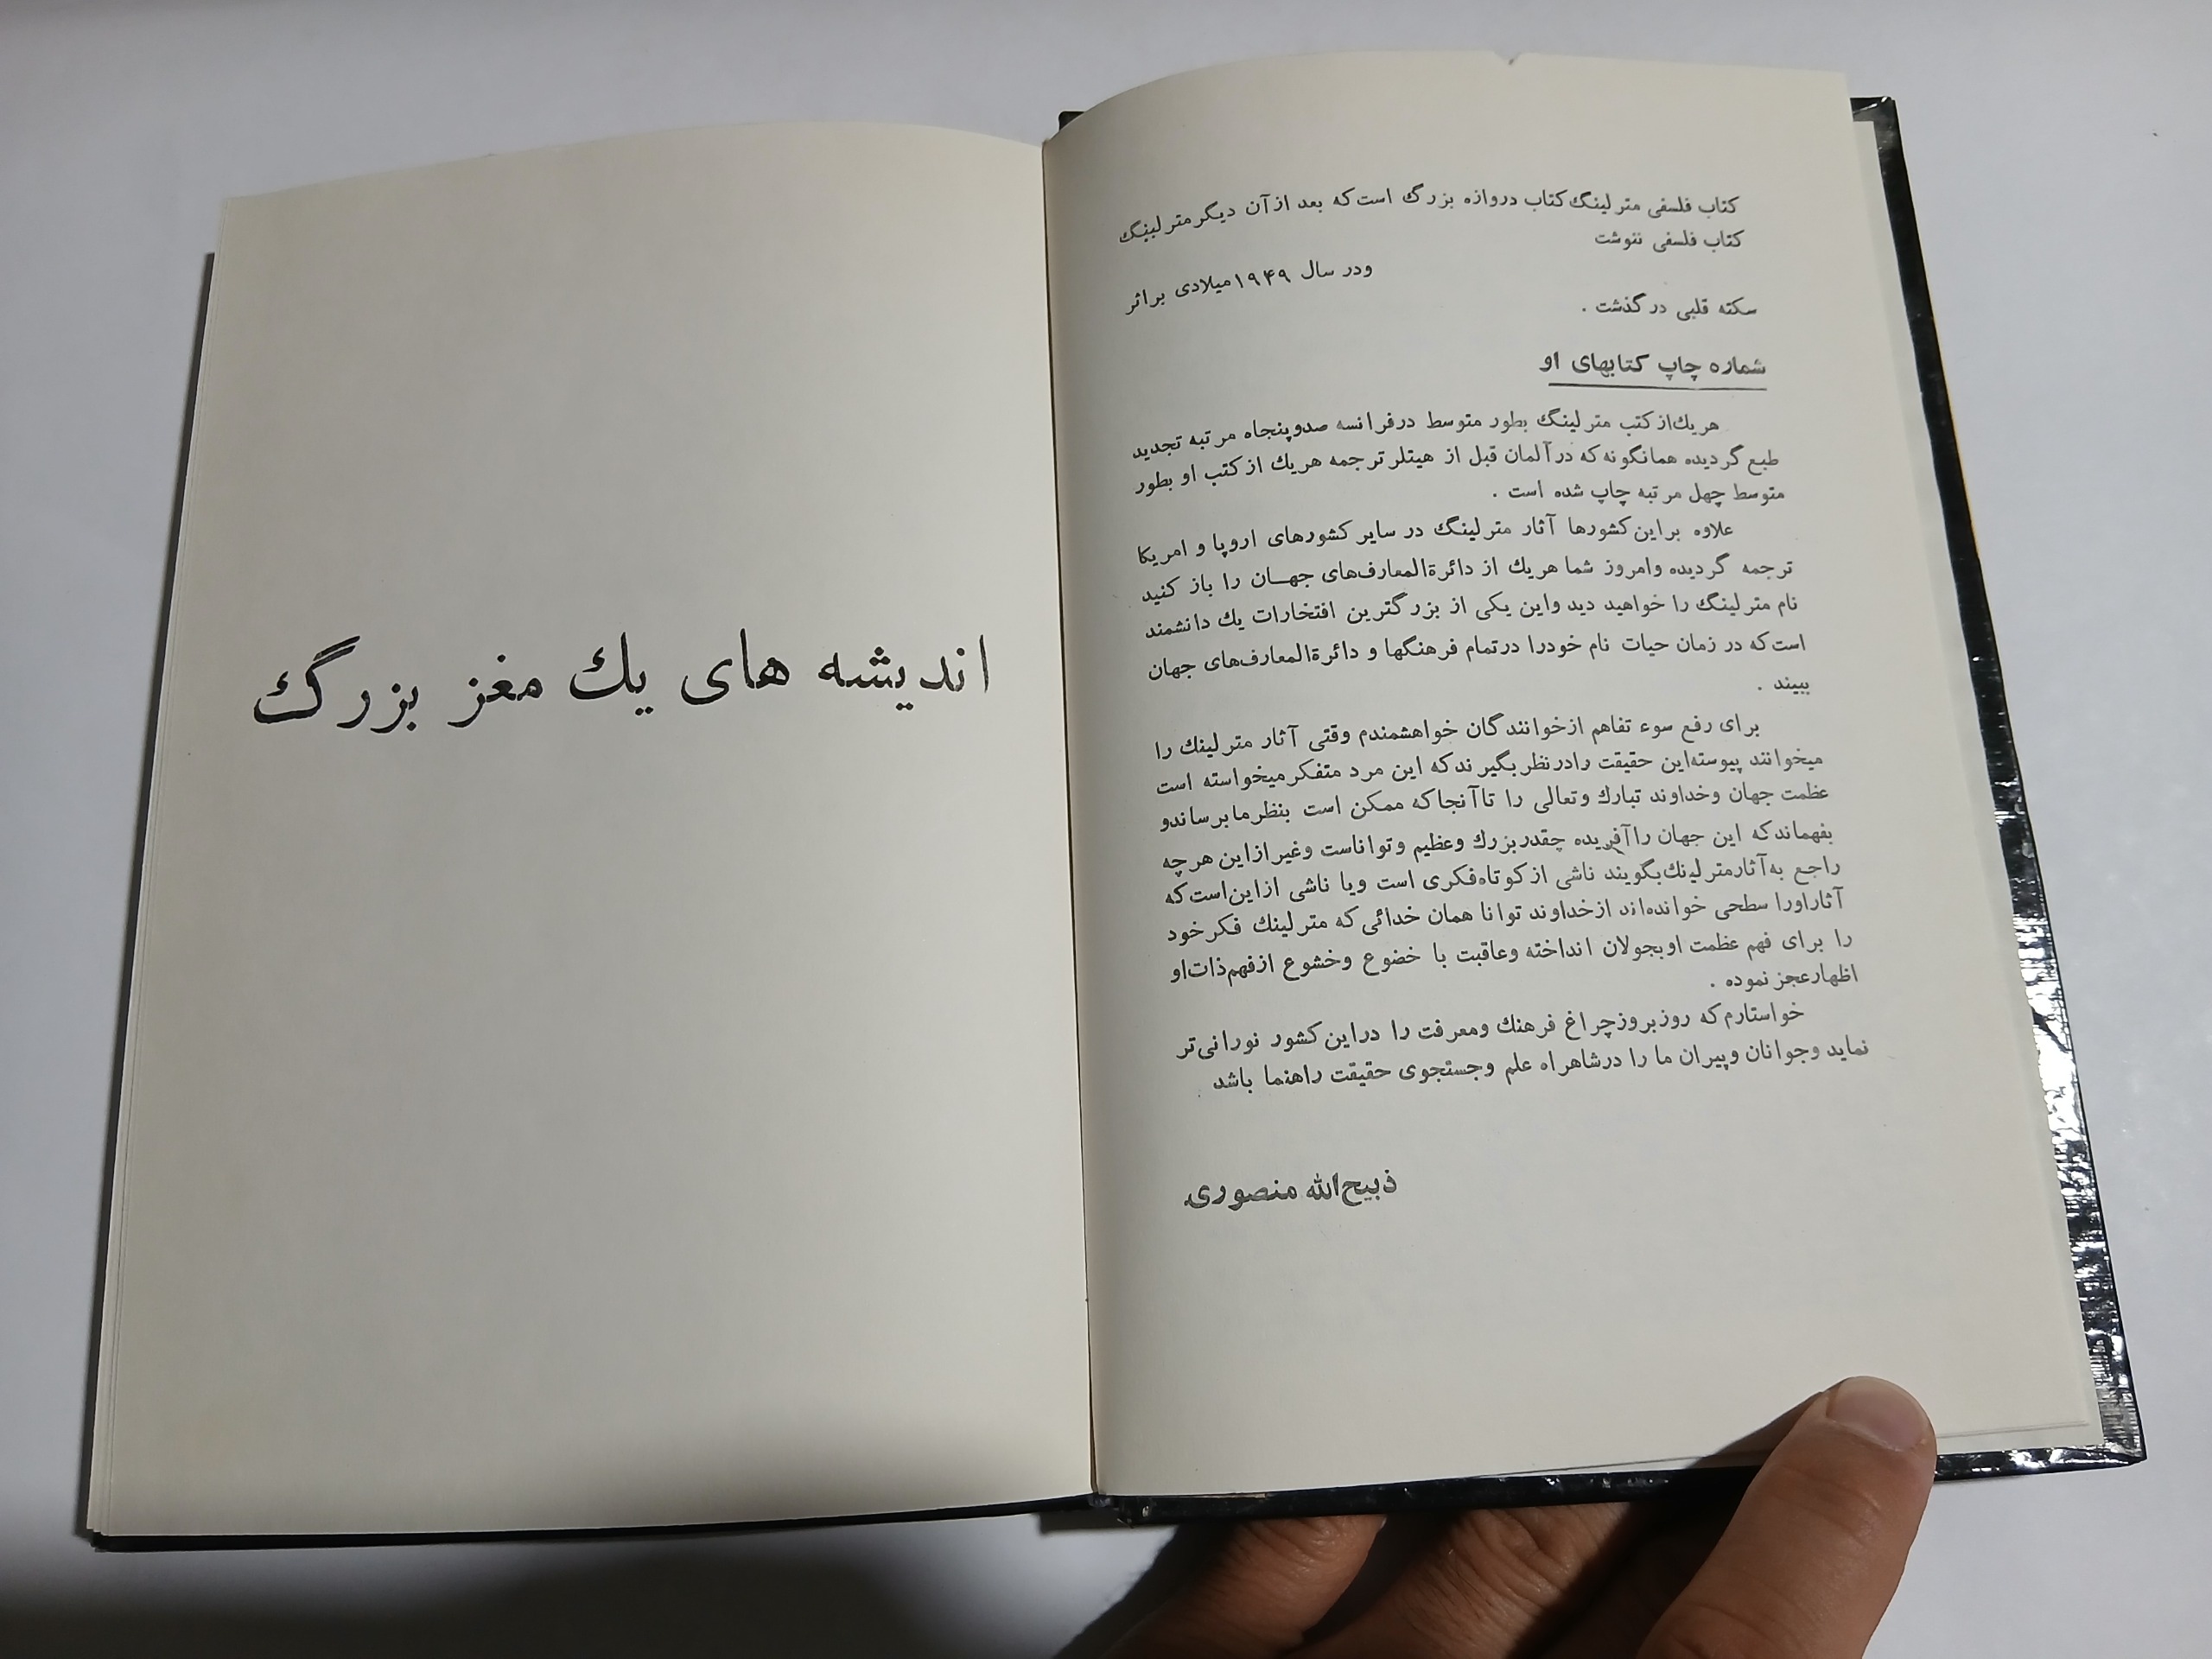 کتاب فلسفی مترلینگ کتاب دروازه بزرگ است که بعد از آن دیگر مترلینگ
کتاب فلسفی ننوشت
ودر سال ۱۹۴۹ میلادی براثر
سکته قلبی درگذشت .
شماره چاپ کتابهای او
هریك از کتب مترلینگ بطور متوسط درفرانسه صدوپنجاه مرتبه تجدید
طبع گردیده همانگونه که درآلمان قبل از هیتلر ترجمه هریك از کتب او بطور
متوسط چهل مرتبه چاپ شده است .
علاوه براین کشورها آثار مترلینگ در سایر کشورهای اروپا و امریکا
ترجمه گردیده وامروز شما هریك از دائرةالمعارف‌های جهـان را باز کنید
نام مترلینگ را خواهید دید واین یکی از بزرگترین افتخارات یك دانشمند
است که در زمان حیات نام خودرا درتمام فرهنگها و دائرةالمعارف‌های جهان
ببیند .
برای رفع سوء تفاهم ازخوانندگان خواهشمندم وقتی آثار مترلینك را
میخوانند پیوسته این حقیقت رادرنظر بگیرند که این مرد متفکر میخواسته است
عظمت جهان وخداوند تبارك وتعالی را تاآنجا که ممکن است بنظر ما برساندو
بفهماند که این جهان را آفریده چقدر بزرك وعظیم وتواناست وغیرازاین هرچه
راجع به آثار مترلینك بگویند ناشی از کوتاه فکری است ویا ناشی ازاین است که
آثاراورا سطحی خوانده‌اند ازخداوند توانا همان خدائی که مترلینك فکرخود
را برای فهم عظمت اوبجولان انداخته وعاقبت با خضوع وخشوع ازفهم ذات او
اظهارعجز نموده .
خواستارم که روزبروز چراغ فرهنك ومعرفت را دراین کشور نورانی‌تر
نماید وجوانان وپیران ما را درشاهراه علم وجستجوی حقیقت راهنما باشد
ذبیح‌الله منصوری
اندیشه های یك مغز بزرگ